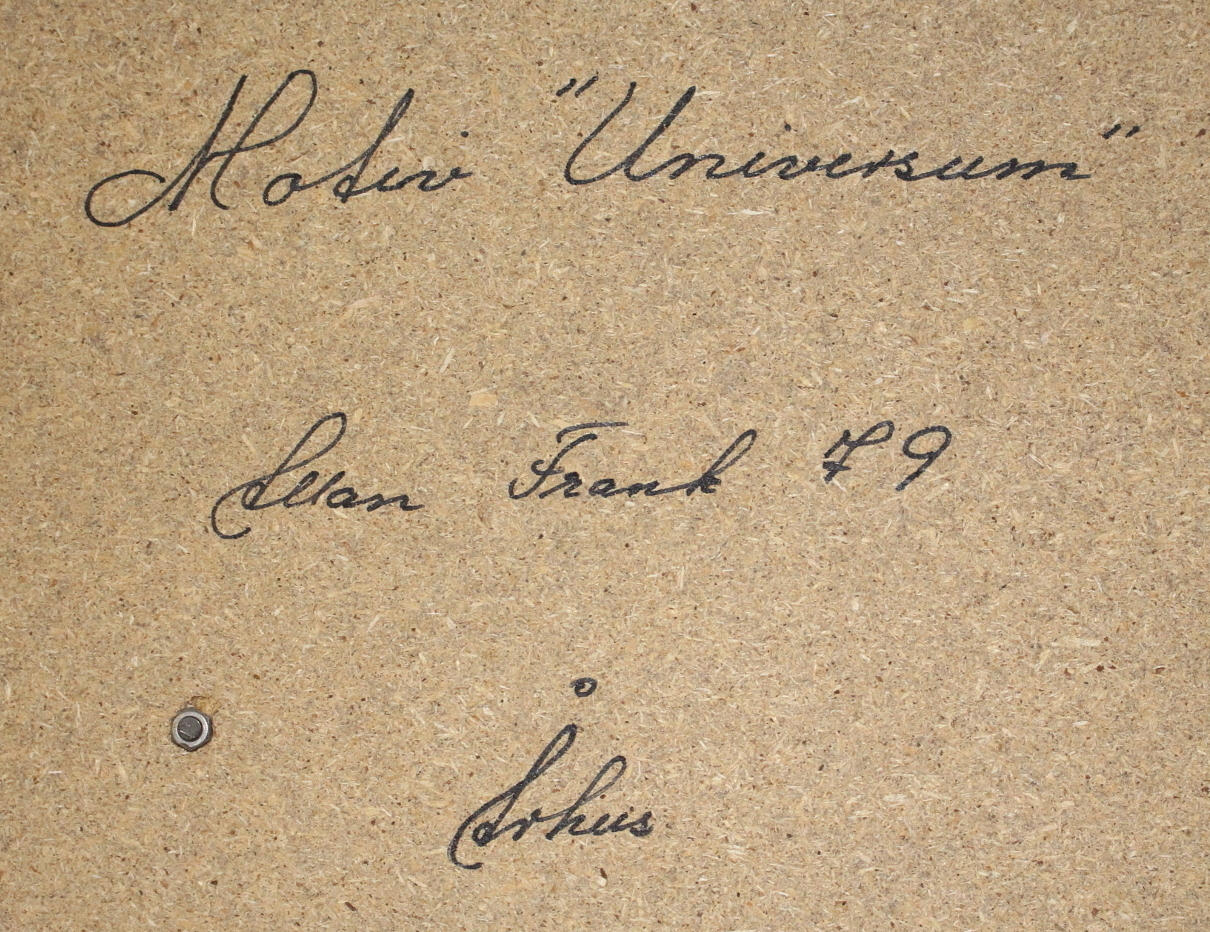 Motiv "Universum"
Allan Frank 79
Århus